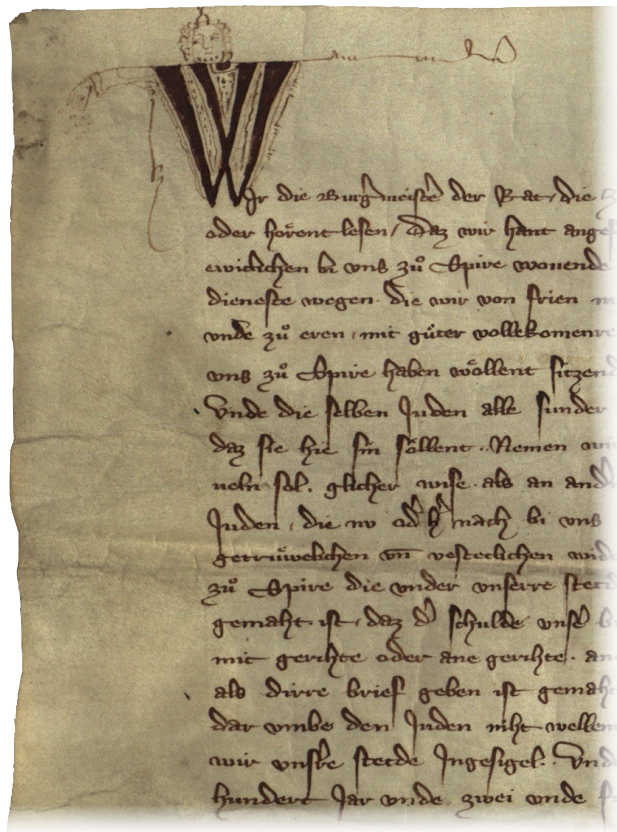 Wir die Burg̃meist̃e der Rat, die
oder hoͤrent lesen, Daz wir hant
ewiclichen bi vns zuͦ Spire wonende
dieneste wegen. die wir von frien
vnde zuͦ eren, mit guͦter
vns zuͦ Spire haben woͤllent
Vnde die selben Juden alle sunder
daz sie hie sin soͤllent .. Nemen
sol. glicher wise. als an
Juden, die nv od̃ h̃ nach bi vns
getruͤwelichen vñ vesteclichen
zuͦ Spire die vnder vnserre
gemaht ist, daz d̃ schulde vnſ̃
mit gerihte oder ane gerihte.
als dirre brief geben ist
dar vmbe den Juden niht
wir vnſre stetde Ingesigel.
hundert Jar vnde zwei vnde